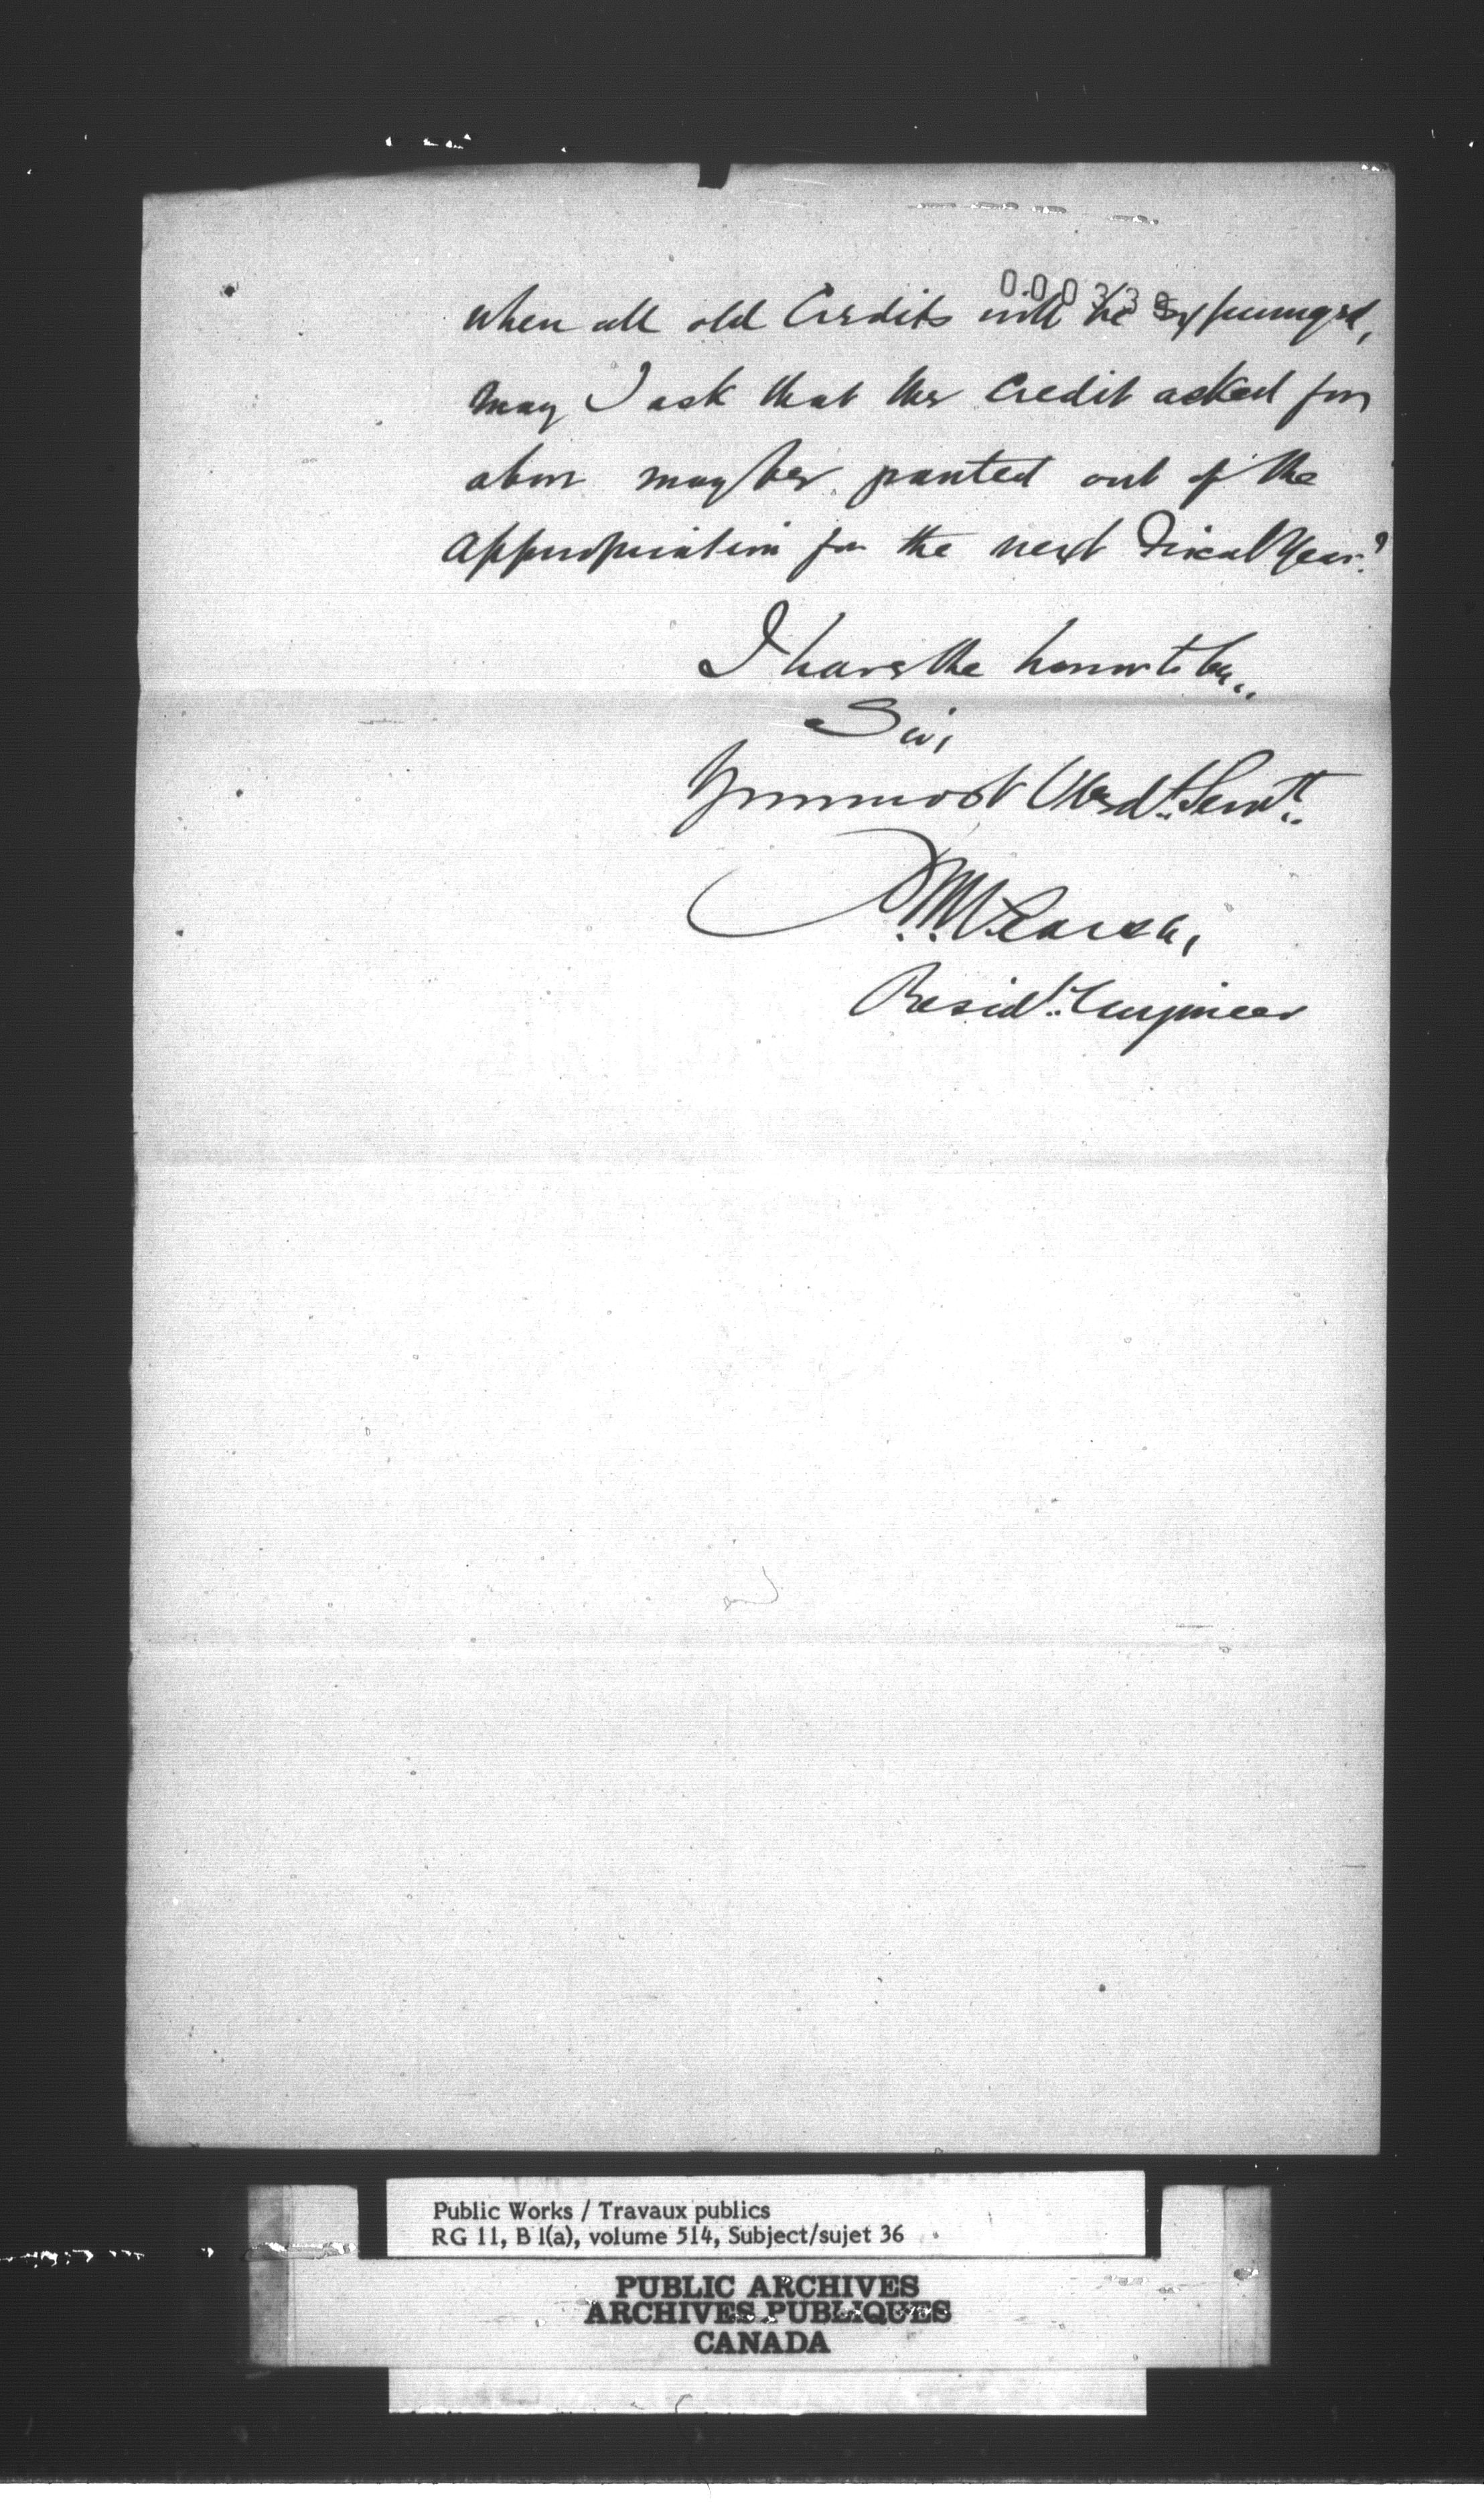 00033
when all old Credits will be expunged,
may I ask that the Credit asked for
above may be granted out of the
appropriation for the next Fiscal Year?
I have the honor to be,,
Sir,
Your most Obed.t Serv.t
Resid.t Engineer
Public Works / Travaux publics
RG 11, B 1(a), volume 514, Subject/sujet 36
PUBLIC ARCHIVES
ARCHIVES PUBLIQUES
CANADA